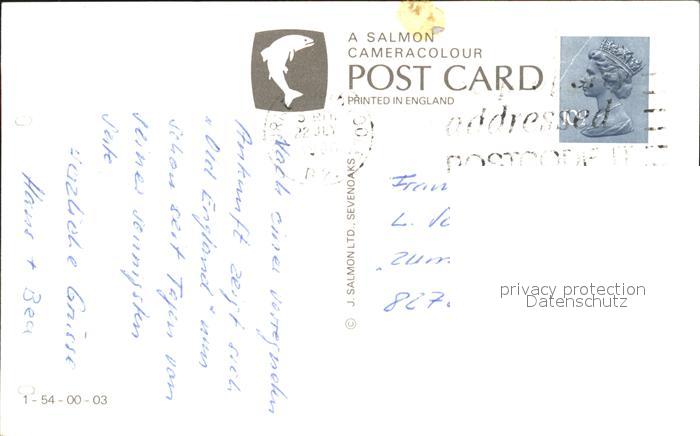 A SALMON
CAMERACOLOUR
POST CARD
PRINTED IN ENGLAND
addressed
POSTCODE IT
© J. SALMON LTD., SEVENOAKS
Nach einer verregneten
Ankunft zeigt sich
"Old England" nun
schon seit Tagen von
seiner sonnigsten
Seite.
Herzliche Grüsse
Hans + Bea
privacy protection
Datenschutz
1-54-00-03